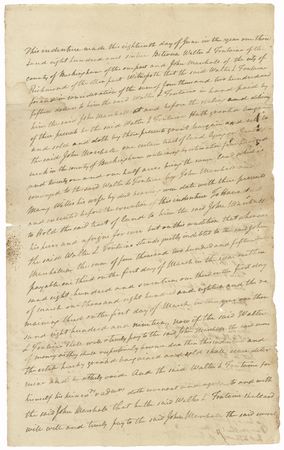 This indenture made this eighteenth day of June in the year one thou
sand eight hundred and sixteen Between Walter L Fontaine of the
county of Buckingham of the one part and John Marshall of the city of
Richmond of the other part Witnesseth that the said Walter L Fontaine
for and in consideration of the sum of four thousand two hundred and
fifteen dollars to him the said Walter L Fontaine in hand paid by
him the said John Marshall at and before the sealing and delivery
of these presents he the said Walter L Fontaine Hath granted bargained
and sold & doth by these presents grant bargain and sell to
the said John Marshall one certain tract of land lying on
creek in the county of Buckingham containing by estimation four hundred
and twenty one and one half acres being the same land
conveyed to the said Walter L Fontaine by John Marshall and
Mary Willis his wife by deed bearing even date with these presents
and executed before the execution of this indenture To Have and
to Hold the said tract of land to him the said John Marshall
his heirs and assigns for ever but on this condition that whereas
the said Walter L Fontaine stands justly indebted to the said John
Marshall in the sum of four thousand two hundred and fifteen dollars
payable one third on the first day of March in the year one thou
sand eight hundred and seventeen one third on the first day
of March one thousand eight hundred and eighteen and the re
maining third on the first day of March in the year one thou
sand eight hundred and nineteen, now if the said Walter
L Fontaine shall well & truly pay to the said John Marshall the said sums
of money as they shall respectively become due then this indenture and
the estate hereby granted bargained and sold shall cease deter
mine and be utterly void. And the said Walter L Fontaine for
himself his heirs &c doth covenant and agree to and with
the said John Marshall that he the said Walter L Fontaine shall and
will well and truly pay to the said John Marshall the said sums